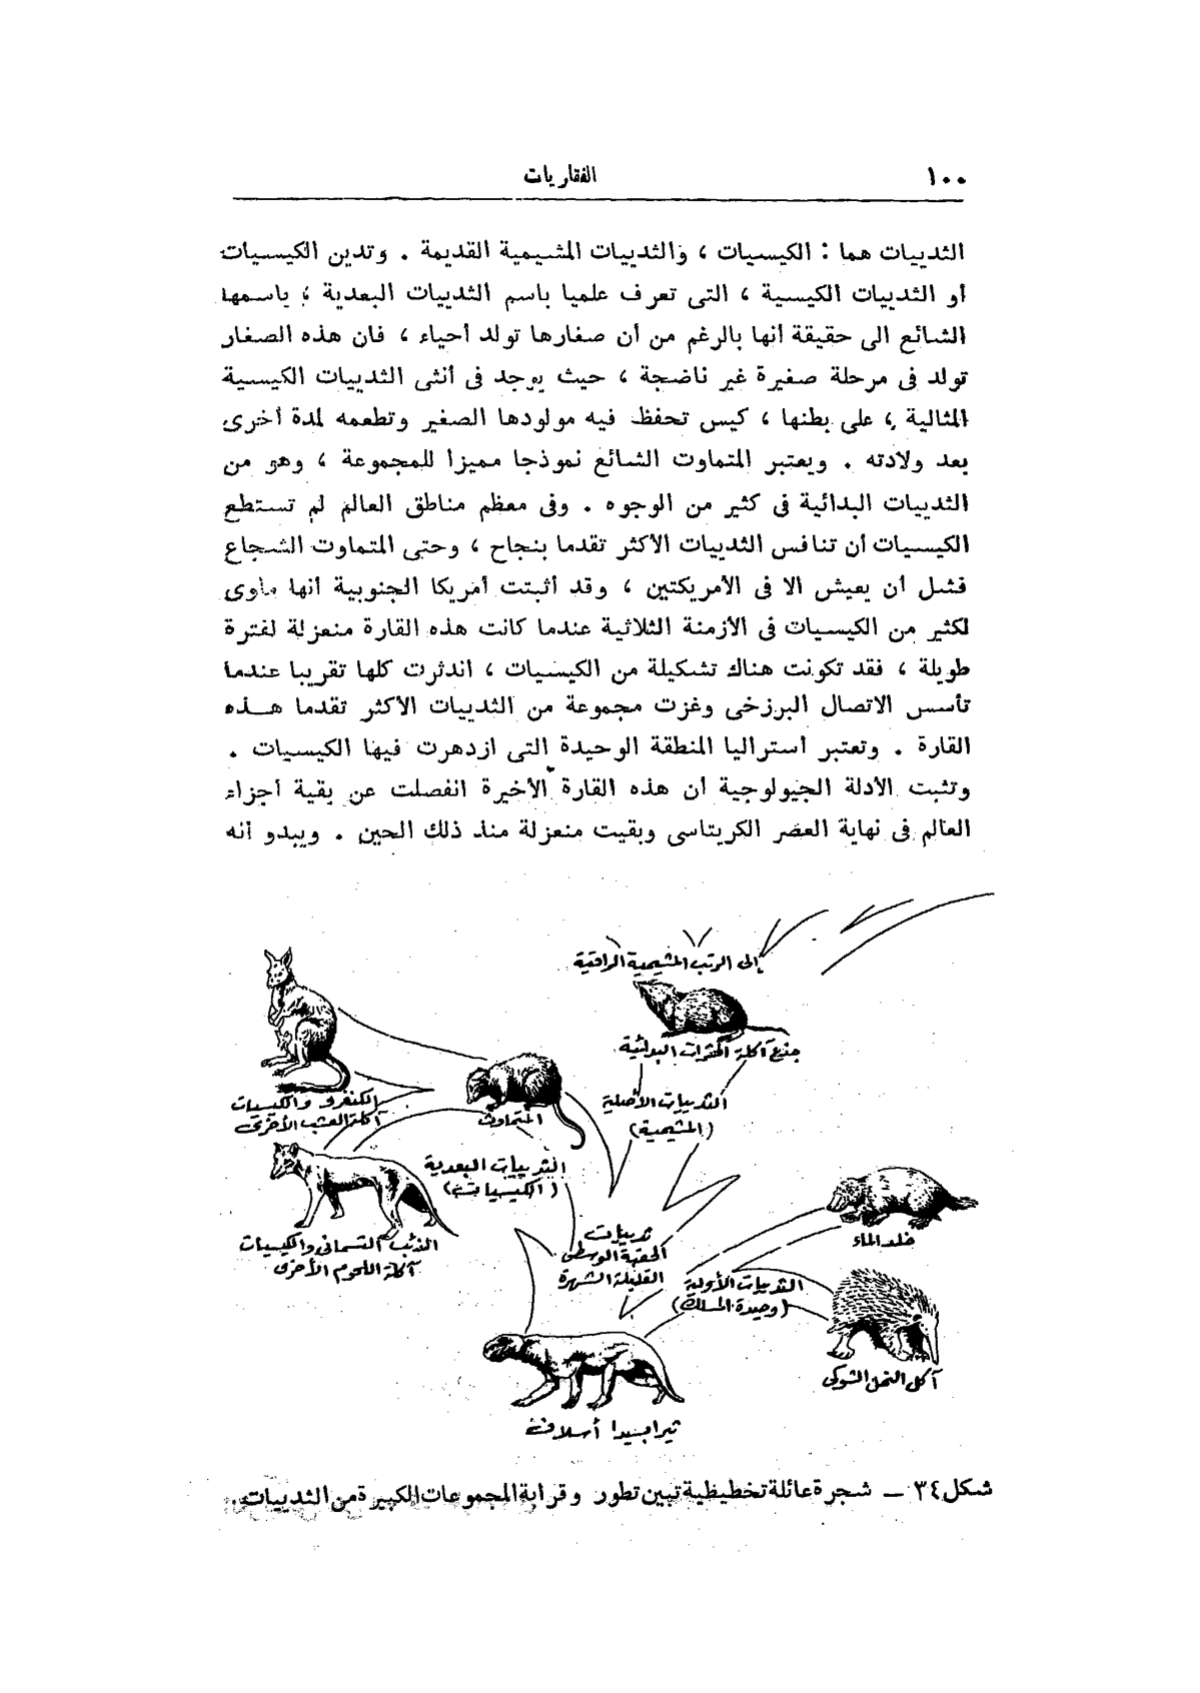 ١٠٠
الفقاريات
الثدييات هما : الكيسيات ، والثدييات المشيمية القديمة . وتدين الكيسيات
أو الثدييات الكيسية ، التى تعرف علميا باسم الثدييات البعدية ، باسمها
الشائع الى حقيقة أنها بالرغم من أن صغارها تولد أحياء ، فان هذه الصغار
تولد فى مرحلة صغيرة غير ناضجة ، حيث يوجد فى أنثى الثدييات الكيسية
المثالية ، على بطنها ، كيس تحفظ فيه مولودها الصغير وتطعمه لمدة أخرى
بعد ولادته . ويعتبر المتماوت الشائع نموذجا مميزا للمجموعة ، وهو من
الثدييات البدائية فى كثير من الوجوه . وفى معظم مناطق العالم لم تستطع
الكيسيات أن تنافس الثدييات الأكثر تقدما بنجاح ، وحتى المتماوت الشجاع
فشل أن يعيش الا فى الأمريكتين ، وقد أثبتت أمريكا الجنوبية أنها مأوى
لكثير من الكيسيات فى الأزمنة الثلاثية عندما كانت هذه القارة منعزلة لفترة
طويلة ، فقد تكونت هناك تشكيلة من الكيسيات ، اندثرت كلها تقريبا عندما
تأسس الاتصال البرزخى وغزت مجموعة من الثدييات الأكثر تقدما هـذه
القارة . وتعتبر استراليا المنطقة الوحيدة التى ازدهرت فيها الكيسيات .
وتثبت الأدلة الجيولوجية أن هذه القارة الأخيرة انفصلت عن بقية أجزاء
العالم فى نهاية العصر الكريتاسى وبقيت منعزلة منذ ذلك الحين . ويبدو أنه
إلى الرتب المشيمية الراقية
جذع آكلة الحشرات البدائية
الكنغرو والكيسيات
آكلة العشب الأخرى
المتماوت
الثدييات الأصلية
(المشيمية)
الثدييات البعدية
(الكيسيات)
الذئب التسمانى والكيسيات
آكلة اللحوم الأخرى
ثدييات
الحقبة الوسطى
القليلة الشهرة
خلد الماء
الثدييات الأولية
(وحيدة المسلك)
آكل النمل الشوكى
ثيرابسيدا أسلاف
شكل ٣٤ ــ شجرة عائلة تخطيطية تبين تطور وقرابة المجموعات الكبيرة من الثدييات .